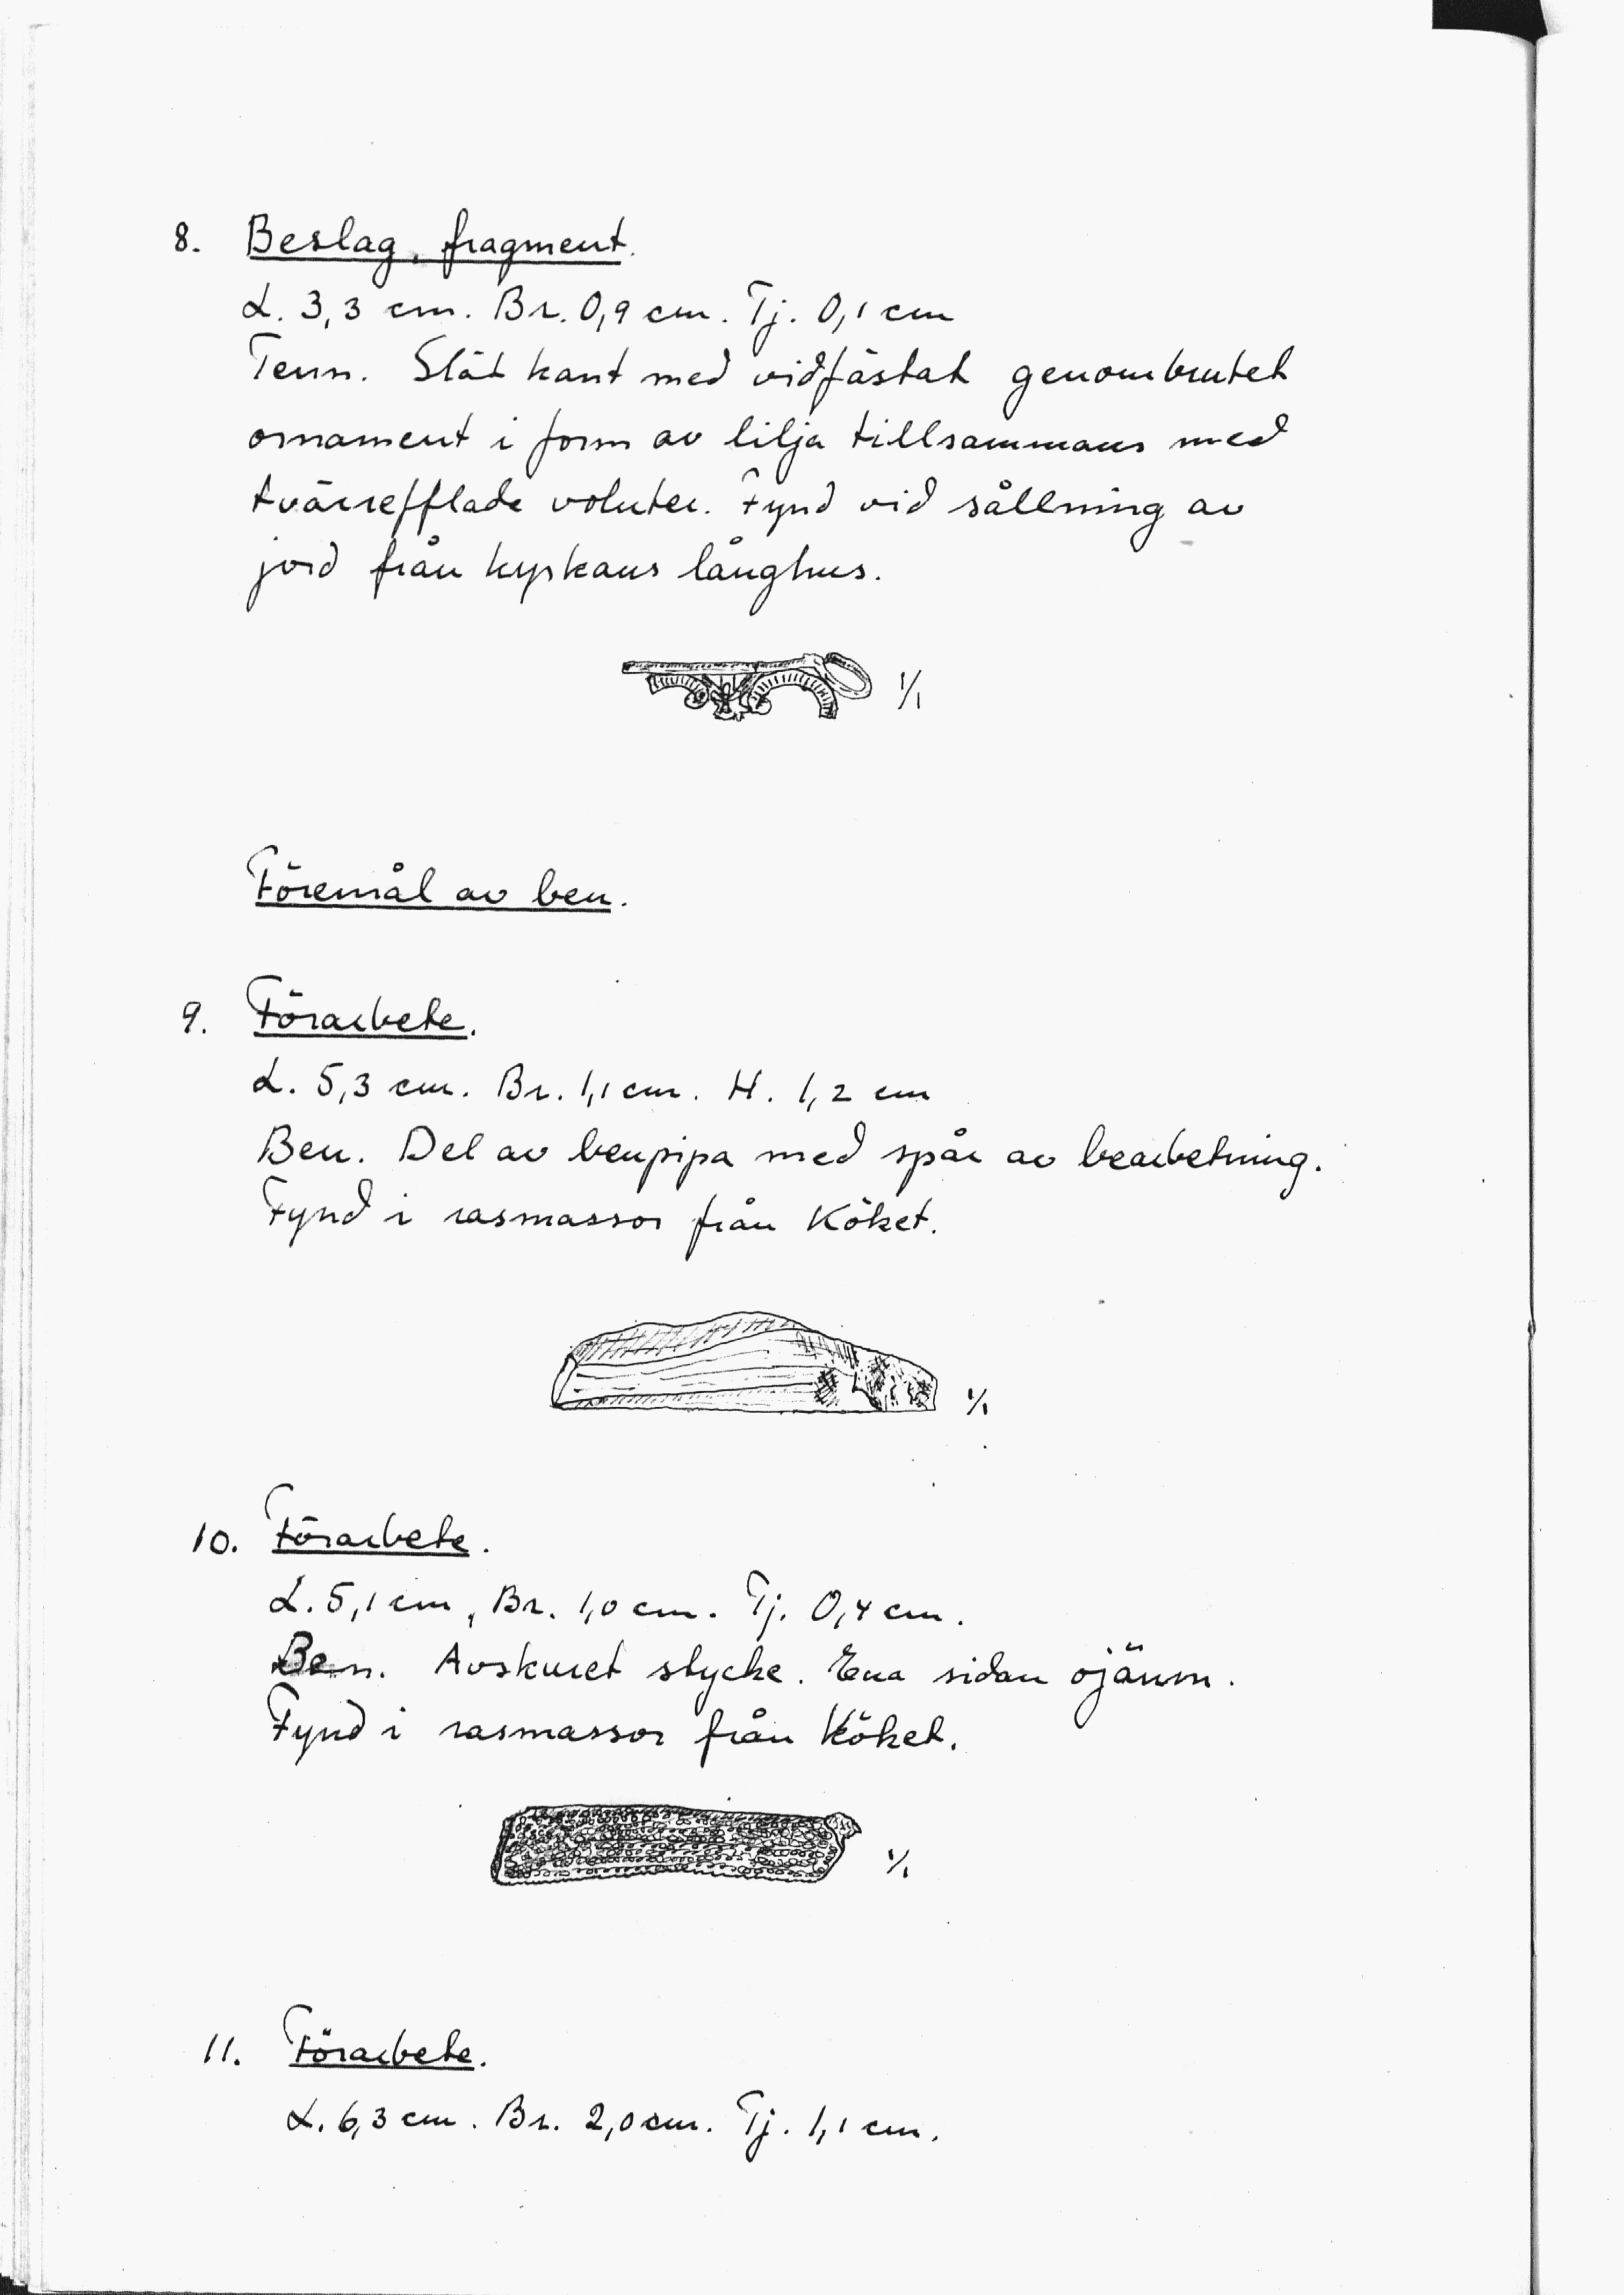 8. Beslag, fragment.
L. 3,3 cm. Br. 0,9 cm. Tj. 0,1 cm
Tenn. Slät kant med vidfästat genombrutet
ornament i form av lilja tillsammans med
tvärrefflade voluter. Fynd vid sållning av
jord från kyrkans långhus.
1/1
Föremål av ben.
9. Förarbete.
L. 5,3 cm. Br. 1,1 cm. H. 1,2 cm
Ben. Del av benpipa med spår av bearbetning.
Fynd i rasmassor från Köket.
1/1
10. Förarbete.
L. 5,1 cm, Br. 1,0 cm. Tj. 0,4 cm.
Ben. Avskuret stycke. Ena sidan ojämn.
Fynd i rasmassor från Köket.
1/1
11. Förarbete.
L. 6,3 cm. Br. 2,0 cm. Tj. 1,1 cm.